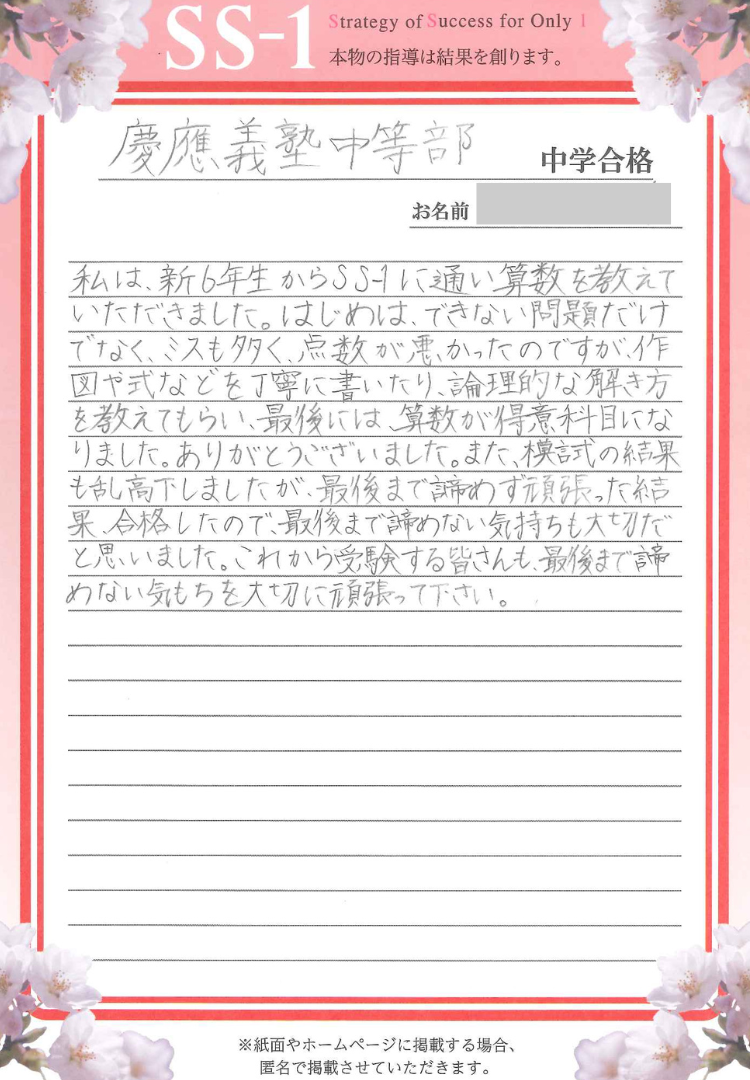 SS-1
Strategy of Success for Only 1
本物の指導は結果を創ります。
慶應義塾中等部
中学合格
お名前
私は、新6年生からSS-1に通い算数を教えて
いただきました。はじめは、できない問題だけ
でなく、ミスも多く、点数が悪かったのですが、作
図や式などを丁寧に書いたり、論理的な解き方
を教えてもらい、最後には、算数が得意科目にな
りました。ありがとうございました。また、模試式の結果
も乱高下しましたが、最後まで諦めず頑張った結
果、合格したので、最後まで諦めない気持ちも大切だ
と思いました。これから受験する皆さんも、最後まで諦
めない気もちを大切に頑張って下さい。
※紙面やホームページに掲載する場合、
匿名で掲載させていただきます。